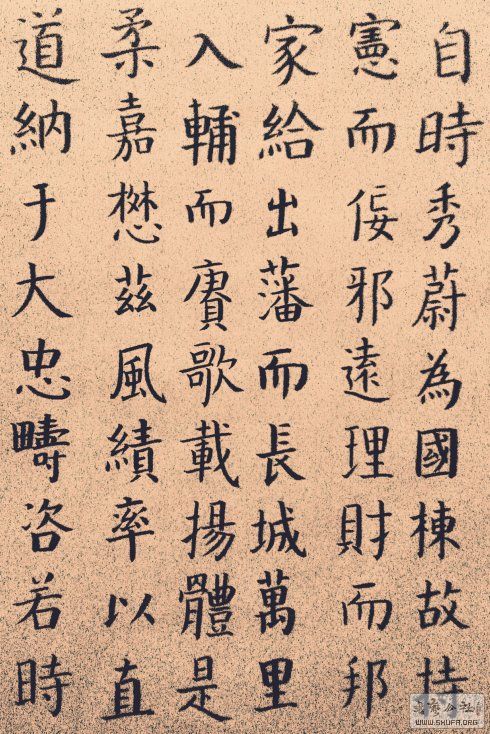 自時秀蔚為國棟故持
憲而佞邪遠理財而邦
家給出藩而長城萬里
入輔而賡歌載揚體是
柔嘉懋茲風績率以直
道納于大忠疇咨若時
WWW.SHUFA.ORG